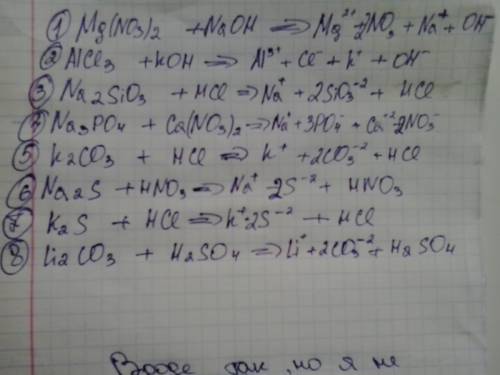 ① Mg(NO3)2 + NaOH ⟹ Mg²⁺ + 2NO3⁻ + Na⁺ + OH⁻
② AlCl3 + KOH ⟹ Al³⁺ + Cl⁻ + K⁺ + OH⁻
③ Na2SiO3 + HCl ⟹ Na⁺ + 2SiO3⁻² + HCl
④ Na3PO4 + Ca(NO3)2 ⟹ Na⁺ + 3PO4⁻ + Ca⁻² 2NO3⁻
⑤ K2CO3 + HCl ⟹ K⁺ + 2CO3⁻² + HCl
⑥ Na2S + HNO3 ⟹ Na⁺ 2S⁻² + HNO3
⑦ K2S + HCl ⟹ K⁺ 2S⁻² + HCl
⑧ Li2CO3 + H2SO4 ⟹ Li⁺ + 2CO3⁻² + H2SO4
так, но я не